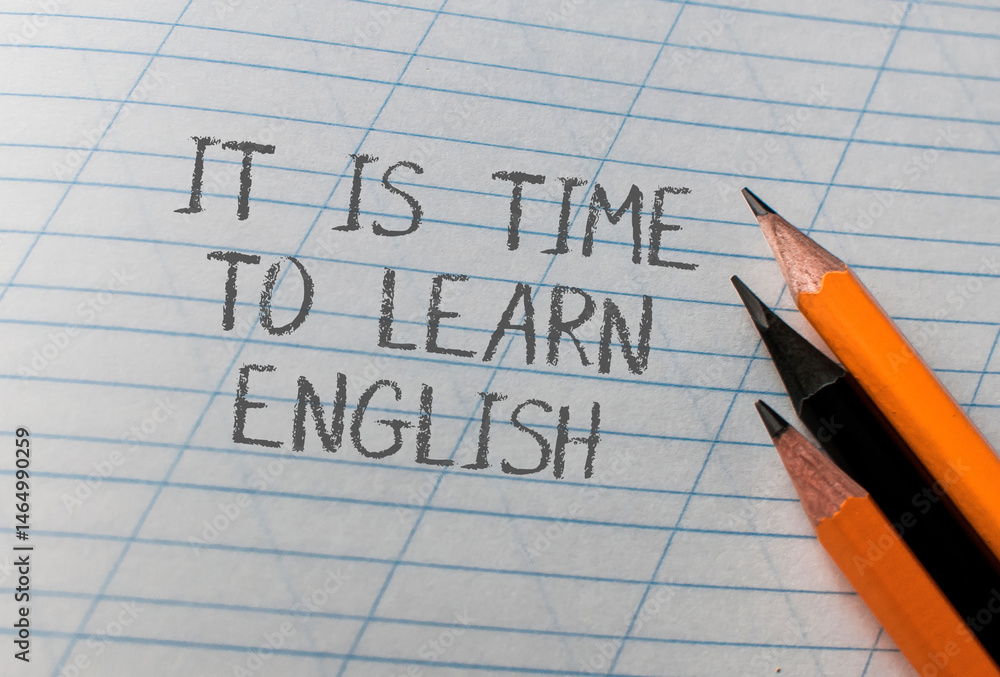 IT IS TIME
TO LEARN
ENGLISH
Adobe Stock | #1464990259